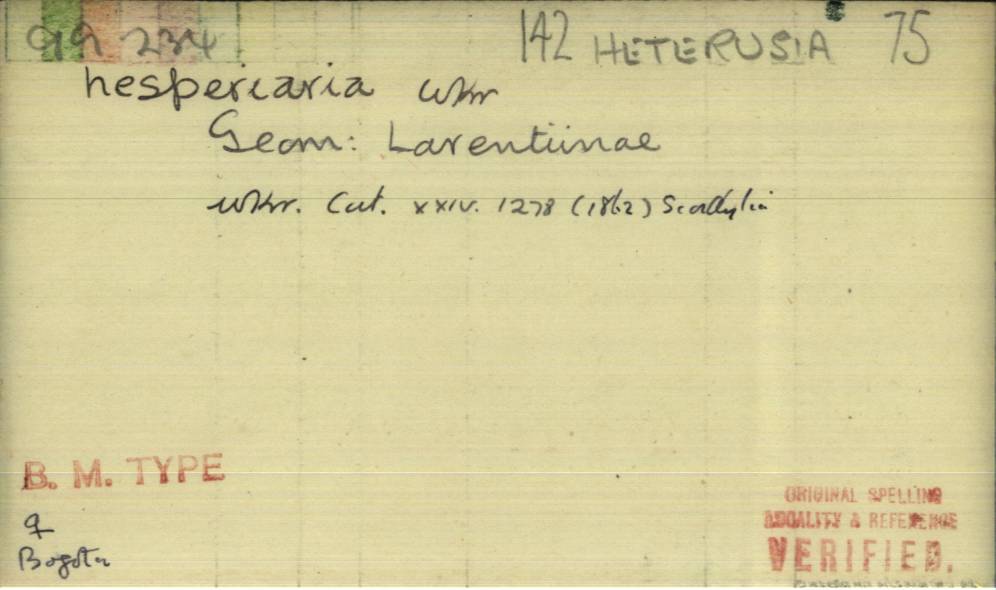 99 234 142 HETERUSIA 75
hesperiaria wkr
Geom: Larentiinae
wkr. Cat. xxiv. 1278 (1862) Scordylia
B. M. TYPE
♀
Bogota
ORIGINAL SPELLING
LOCALITY & REFERENCE
VERIFIED.